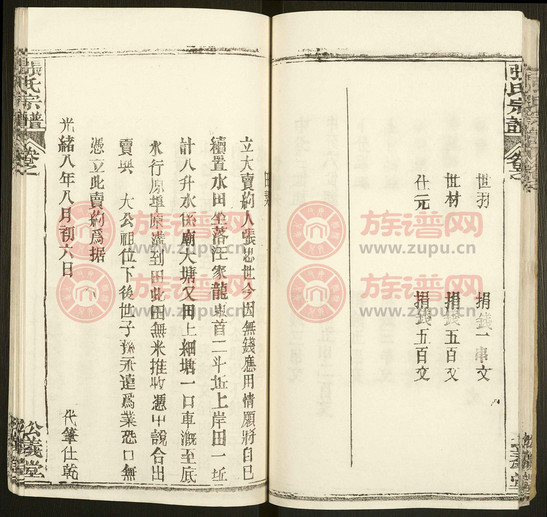 張氏宗譜 卷之
世羽 捐錢一串文
世材 捐錢五百文
仕元 捐錢五百文
立大賣約人張思世今因無錢應用情願將自己
續置水田坐落汪家龍 首二斗坵上岸田一坵
計八升水係廟大塘又田上細塘一口車溉至底
水行原 原溝到田此田無米推收憑中說合出
賣與 大公祖位下後世子孫永遠爲業恐口無
憑立此賣約爲据
光緒八年八月初六日 代筆仕乾
張氏宗譜 卷
公義堂
族谱网
www.zupu.cn
族谱网
www.zupu.cn
族谱网
www.zupu.cn
族谱网
www.zupu.cn